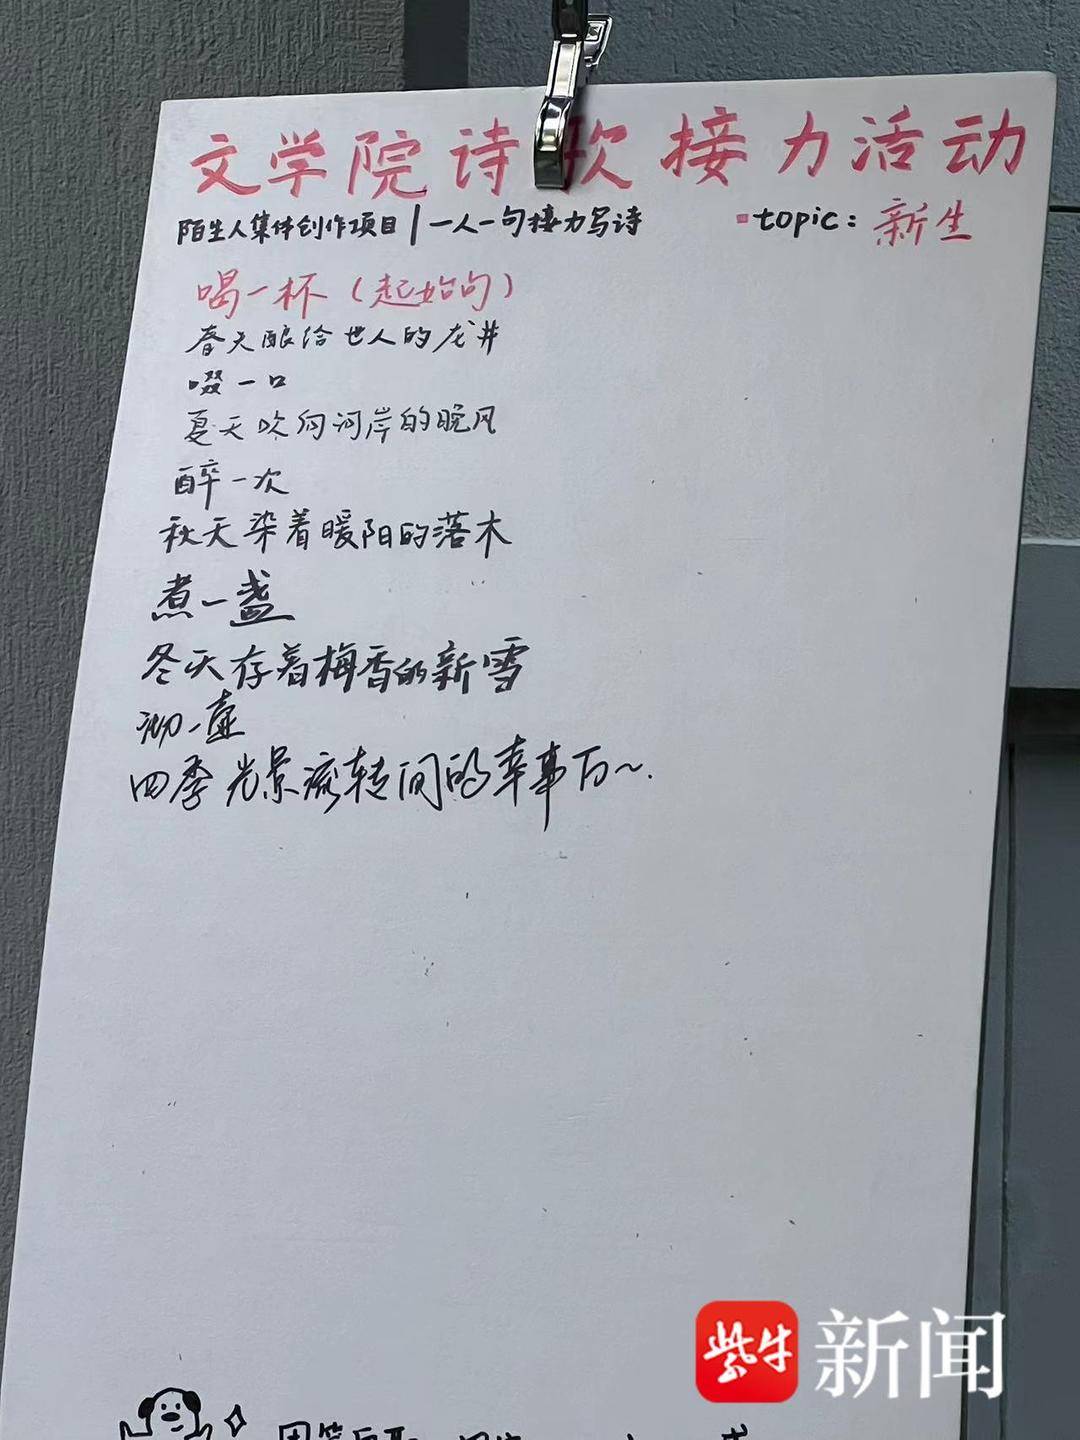 文学院诗歌接力活动
陌生人集体创作项目|一人一句接力写诗
topic：新生
喝一杯（起始句）
春天酿给世人的龙井
啜一口
夏天吹向河岸的晚风
醉一次
秋天染着暖阳的落木
煮一盏
冬天存着梅香的新雪
沏一壶
四季光景流转间的幸事万～.
紫牛新闻